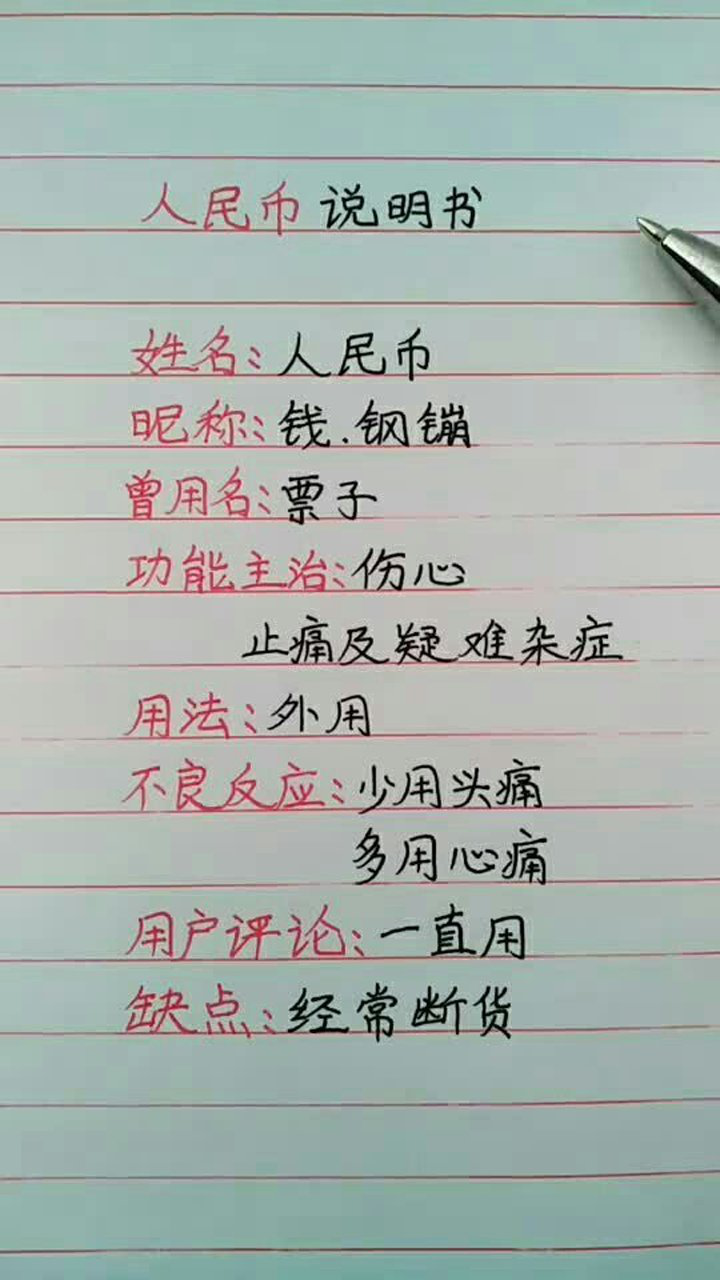 人民币说明书
姓名:人民币
昵称:钱.钢镚
曾用名:票子
功能主治:伤心
止痛及疑难杂症
用法:外用
不良反应:少用头痛
多用心痛
用户评论:一直用
缺点:经常断货